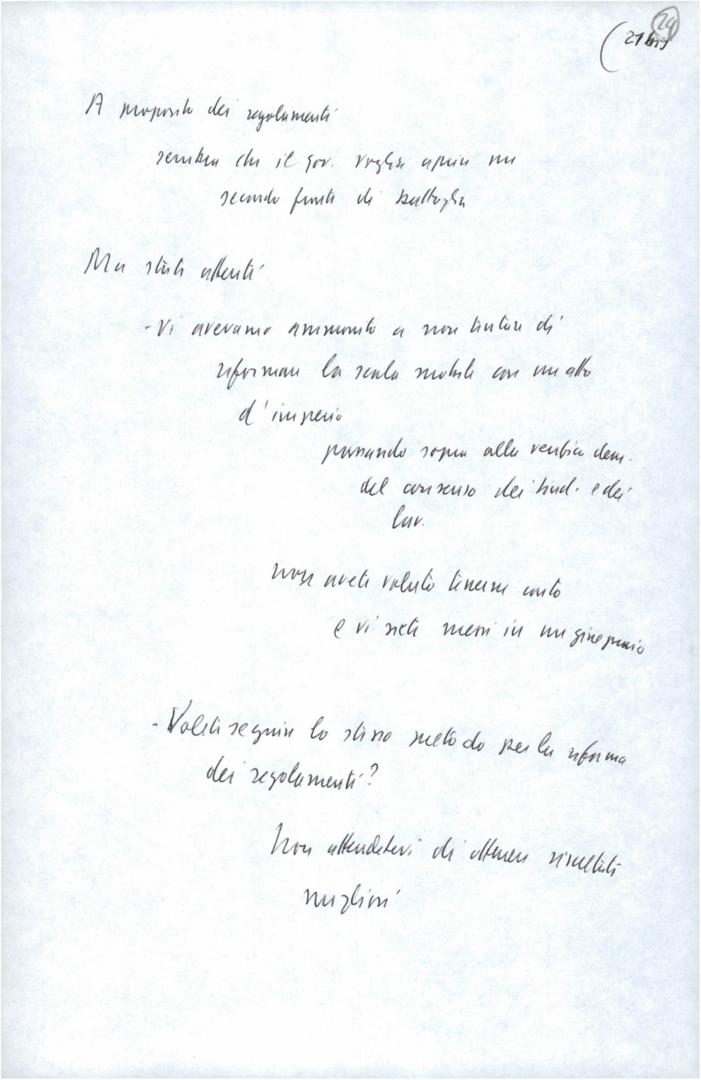 24
(21 bis
A proposito dei regolamenti
sembra che il gov. voglia aprire un
secondo fronte di battaglia
Ma state attenti
- Vi avevamo ammonito a non tentare di
riformare la scala mobile con un atto
d'imperio
passando sopra alla verifica dem.
del consenso dei sind. e dei
lav.
non avete voluto tenerne conto
e vi siete messi in un ginepraio
- Volete seguire lo stesso metodo per la riforma
dei regolamenti?
Non attendetevi di ottenere risultati
migliori